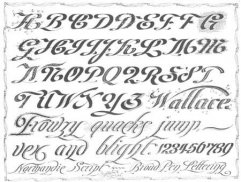 A B C D E F F G
G H I J K L M M
N N O P Q R S T
T U V W X Y Z Wallace
Frowzy quacks jump
vex and blight. 1234567890
Normandie Script Broad Pen Lettering